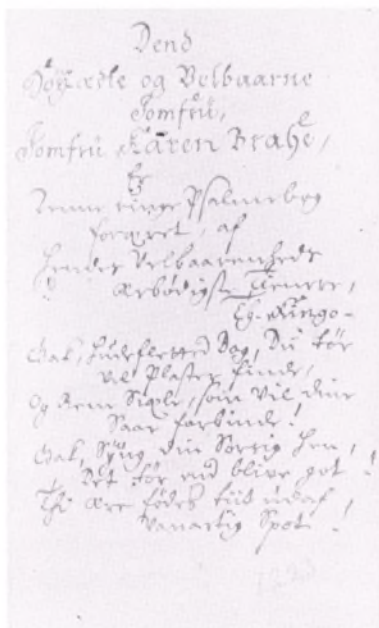 Dend
Höyædle og Velbaarne
Jomfrü,
Jomfrü Karen Brahe,
Er
Denne ringe Psalmebog
foræret, af
Hendes Velbaarenheds
ærbödigste Tienere,
Kingo
Gak, Bog, Dü tör
vel Plaster finde,
Og Siæle, som vil dine
Saar forbinde!
Gak, Syng din Sorrig hen,
Det tör end blive got!
Thi ære födes tiit udaf
Vanartig Spot!